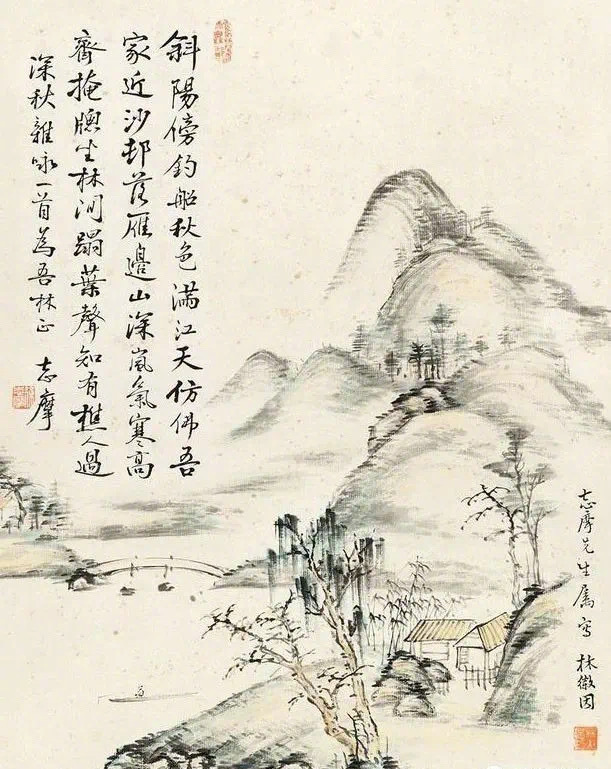 斜陽傍釣船秋色滿江天仿佛吾
家近沙邨落雁邊山深嵐氣寒高
齋掩牕坐林间蹋葉聲知有樵人過
深秋雜咏一首為吾林正 志摩
志摩先生属寫 林徽因